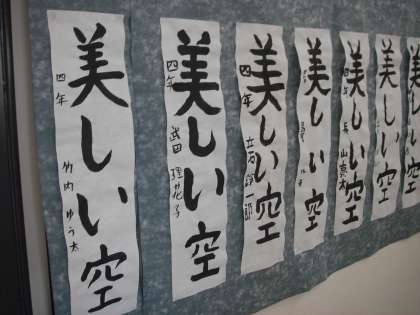 美しい空
四年
竹内 ゆう太
美しい空
四年
武田 理花子
美しい空
四年
美しい空
美しい空
四年
美しい空
美しい